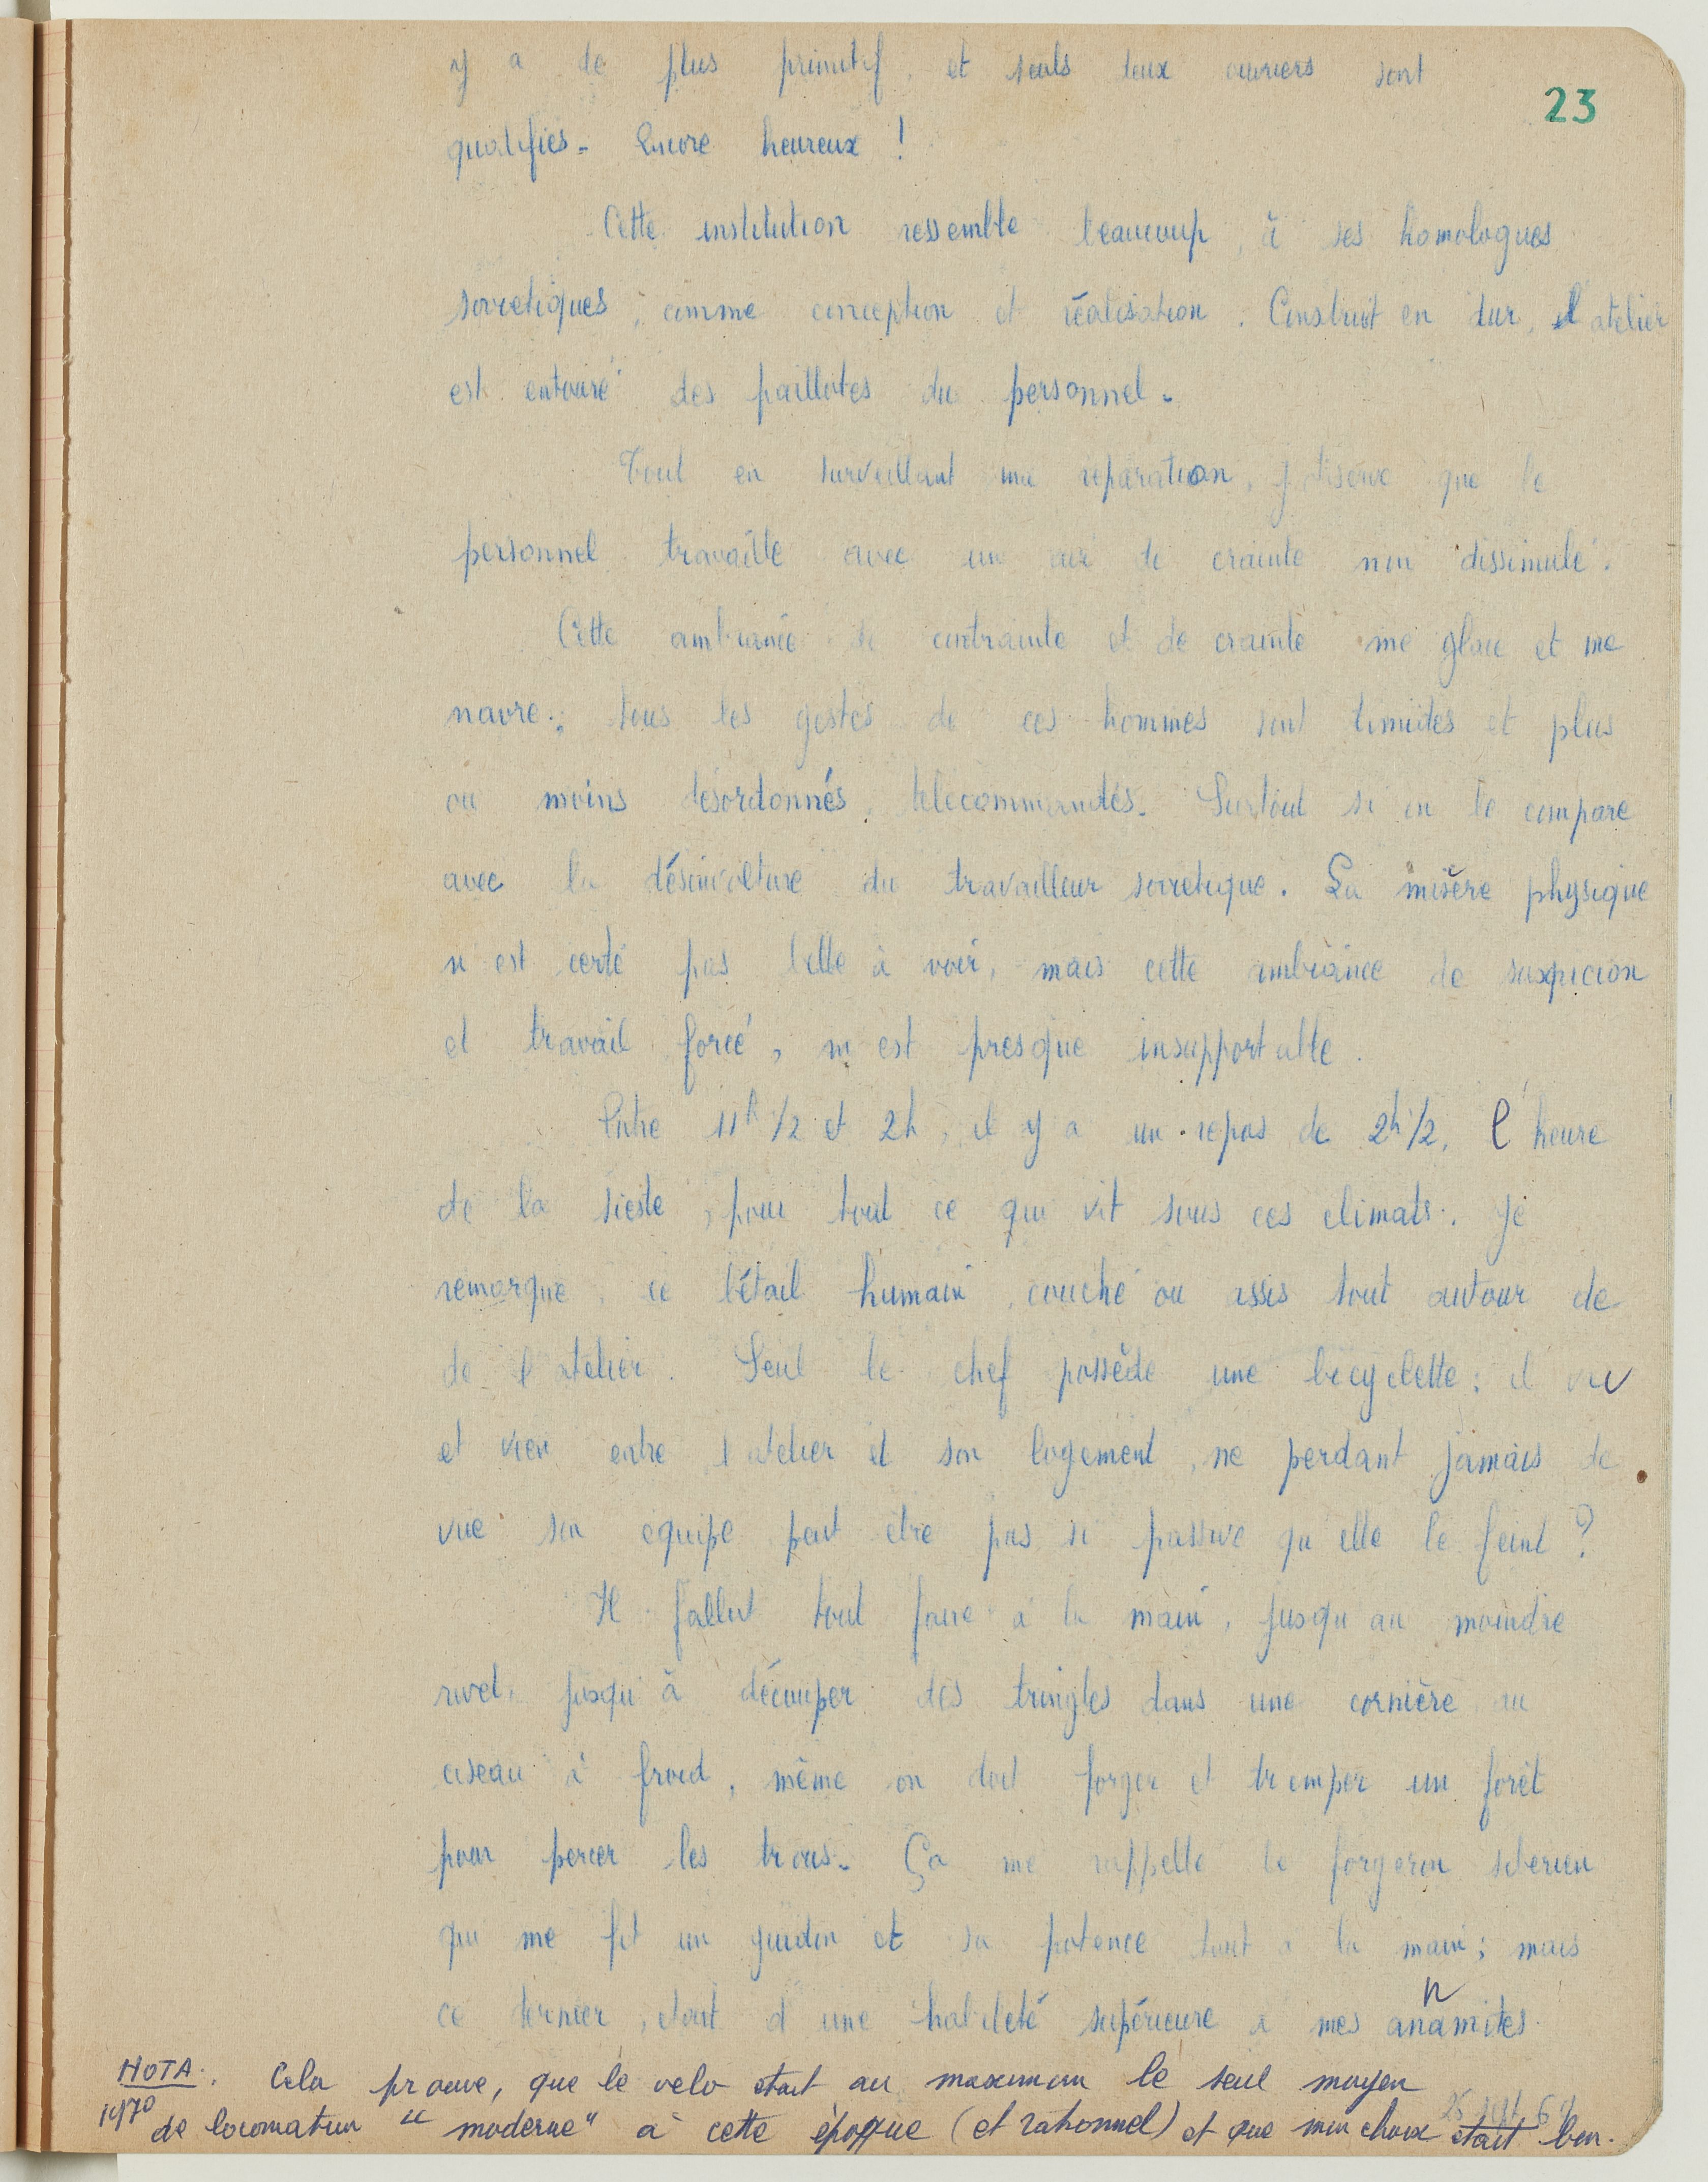 23
y a de plus primitif, et seuls deux ouvriers sont
qualifiés. Encore heureux !
Cette institution ressemble beaucoup, à ses homologues
sovietiques, comme conception et réalisation. Construit en dur, l atelier
est entouré des paillotes du personnel.
Tout en surveillant ma reparation, j observe que le
personnel travaille avec un air de crainte non dissimulé.
Cette ambiance de contrainte et de crainte me glace et me
navre; tous les gestes de ces hommes sont timides et plus
ou moins désordonnés, telecommandés. Surtout si on le compare
avec la désinvolture du travailleur sovietique. La misère physique
n est certe pas belle à voir, mais cette ambiance de suspicion
et travail forcé, m est presque insupportable.
Entre 11h 1/2 et 2h, il y a un repos de 2h 1/2, l heure
de la sieste, pour tout ce qui vit sous ces climats. Je
remarque, ce bétail humain, couché ou assis tout autour de
de l atelier. Seul le chef possède une bicyclette; il va
et vien entre l atelier et son logement, ne perdant jamais de
vue son equipe peut etre pas si passive qu elle le feint ?
Il fallut tout faire a la main, jusqu au moindre
rivet, jusqu à découper des tringles dans une cornière au
ciseau à froid, même on doit forger et tremper un forêt
pour percer les trous. Ça me rappelle le forgeron siberien
qui me fit un guidon et sa potence tout a la main; mais
ce dernier, etait d une habileté supérieure a mes annamites
NOTA. Cela prouve, que le velo etait au maximum le seul moyen
1970 de locomotion "moderne" à cette époque (et rationnel) et que mon choix etait bon.